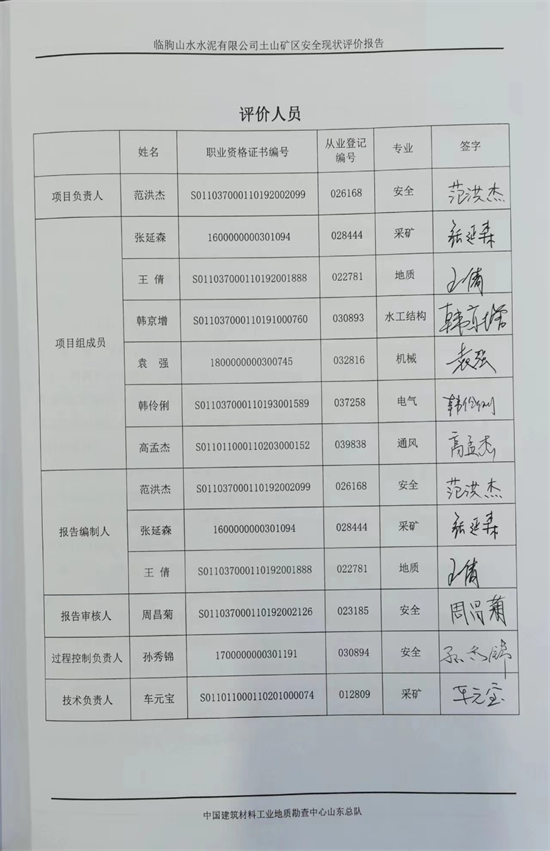 临朐山水水泥有限公司土山矿区安全现状评价报告
评价人员
姓名 职业资格证书编号 从业登记编号 专业 签字
项目负责人 范洪杰 S011037000110192002099 026168 安全 范洪杰
项目组成员 张延森 1600000000301094 028444 采矿 张延森
王 倩 S011037000110192001888 022781 地质 王倩
韩京增 S011037000110191000760 030893 水工结构 韩京增
袁 强 1800000000300745 032816 机械 袁强
韩伶俐 S011037000110193001589 037258 电气 韩伶俐
高孟杰 S011011000110203000152 039838 通风 高孟杰
报告编制人 范洪杰 S011037000110192002099 026168 安全 范洪杰
张延森 1600000000301094 028444 采矿 张延森
王 倩 S011037000110192001888 022781 地质 王倩
报告审核人 周昌菊 S011037000110192002126 023185 安全 周昌菊
过程控制负责人 孙秀锦 1700000000301191 030894 安全 孙秀锦
技术负责人 车元宝 S011011000110201000074 012809 采矿 车元宝
中国建筑材料工业地质勘查中心山东总队